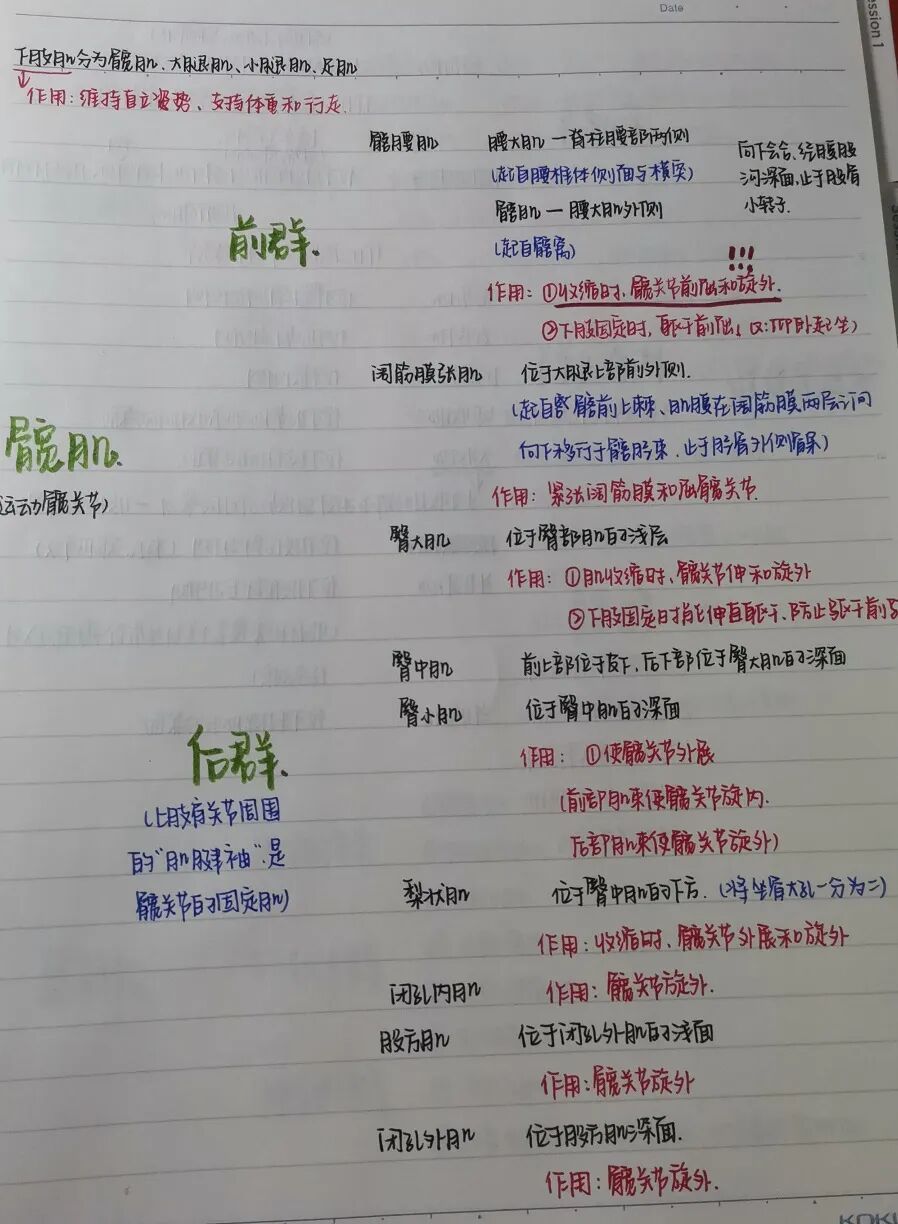 Date
ession 1
下肢肌分为髋肌、大腿肌、小腿肌、足肌
作用:维持直立姿势、支持体重和行走.
髂腰肌 腰大肌 — 脊柱腰部两侧
(起自腰椎体侧面与横突)
髂肌 — 腰大肌外侧
(起自髂窝)
向下会合、经腹股
沟深面,止于股骨
小转子.
前群.
!!!
作用: ①收缩时、髋关节前屈和旋外.
②下肢固定时,躯干前屈
髋肌.
(运动髋关节)
阔筋膜张肌 位于大腿上部前外侧.
(起自髂前上棘、肌腹在阔筋膜两层之间
向下移行于髂胫束.止于胫骨外侧髁)
作用:紧张阔筋膜和屈髋关节.
臀大肌 位于臀部肌的浅层
作用: ①肌收缩时、髋关节伸和旋外
②下肢固定时能伸直躯干、防止躯干前
臀中肌 前上部位于皮下,后下部位于臀大肌的深面
臀小肌 位于臀中肌的深面
后群.
作用: ①使髋关节外展
(前部肌束使髋关节旋内.
后部肌束使髋关节旋外)
关节周围
的“肌腱袖”.是
髋关节的固定肌)
梨状肌 位于臀中肌的下方.(将坐骨大孔一分为二)
作用:收缩时、髋关节外展和旋外
闭孔内肌 作用:髋关节旋外.
股方肌 位于闭孔外肌的浅面
作用:髋关节旋外
闭孔外肌 位于股方肌深面.
作用:髋关节旋外.